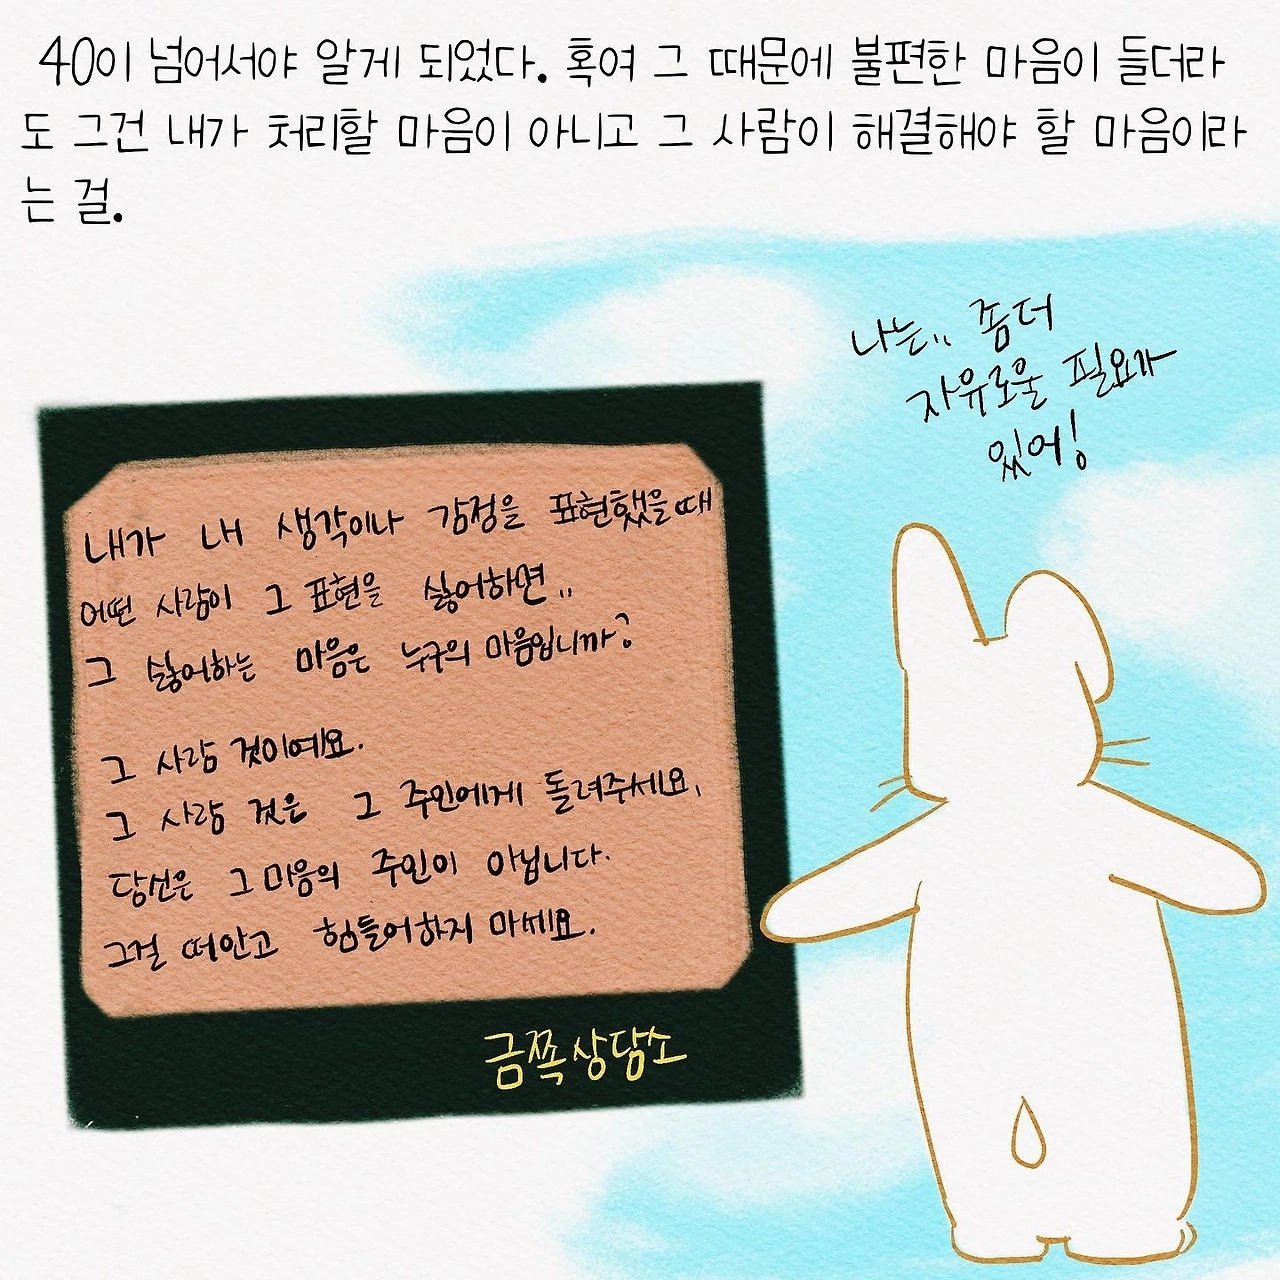 40이 넘어서야 알게 되었다. 혹여 그 때문에 불편한 마음이 들더라
도 그건 내가 처리할 마음이 아니고 그 사람이 해결해야 할 마음이라
는 걸.
나는.. 좀더
자유로울 필요가
있어!
내가 내 생각이나 감정을 표현했을때
어떤 사람이 그 표현을 싫어하면..
그 싫어하는 마음은 누구의 마음입니까?
그 사람 것이예요.
그 사람 것은 그 주인에게 돌려주세요.
당신은 그 마음의 주인이 아닙니다.
그걸 떠안고 힘들어하지 마세요.
금쪽상담소